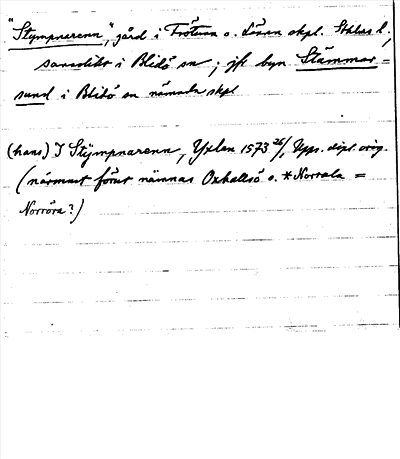 "Stympnarenn", gård i Frötuna o. Länna skpl. Sthlms l.,
sannolikt i Blidö sn; jfr byn Stämmar=
sund i Blidö sn nämnda skpl
(hans) I Stÿmpnarenn, Yxlan 1573 26/1, Upps. dipl. orig.
(närmast förut nämnas Oxhallsö o. *Norrala =
Norröra?)